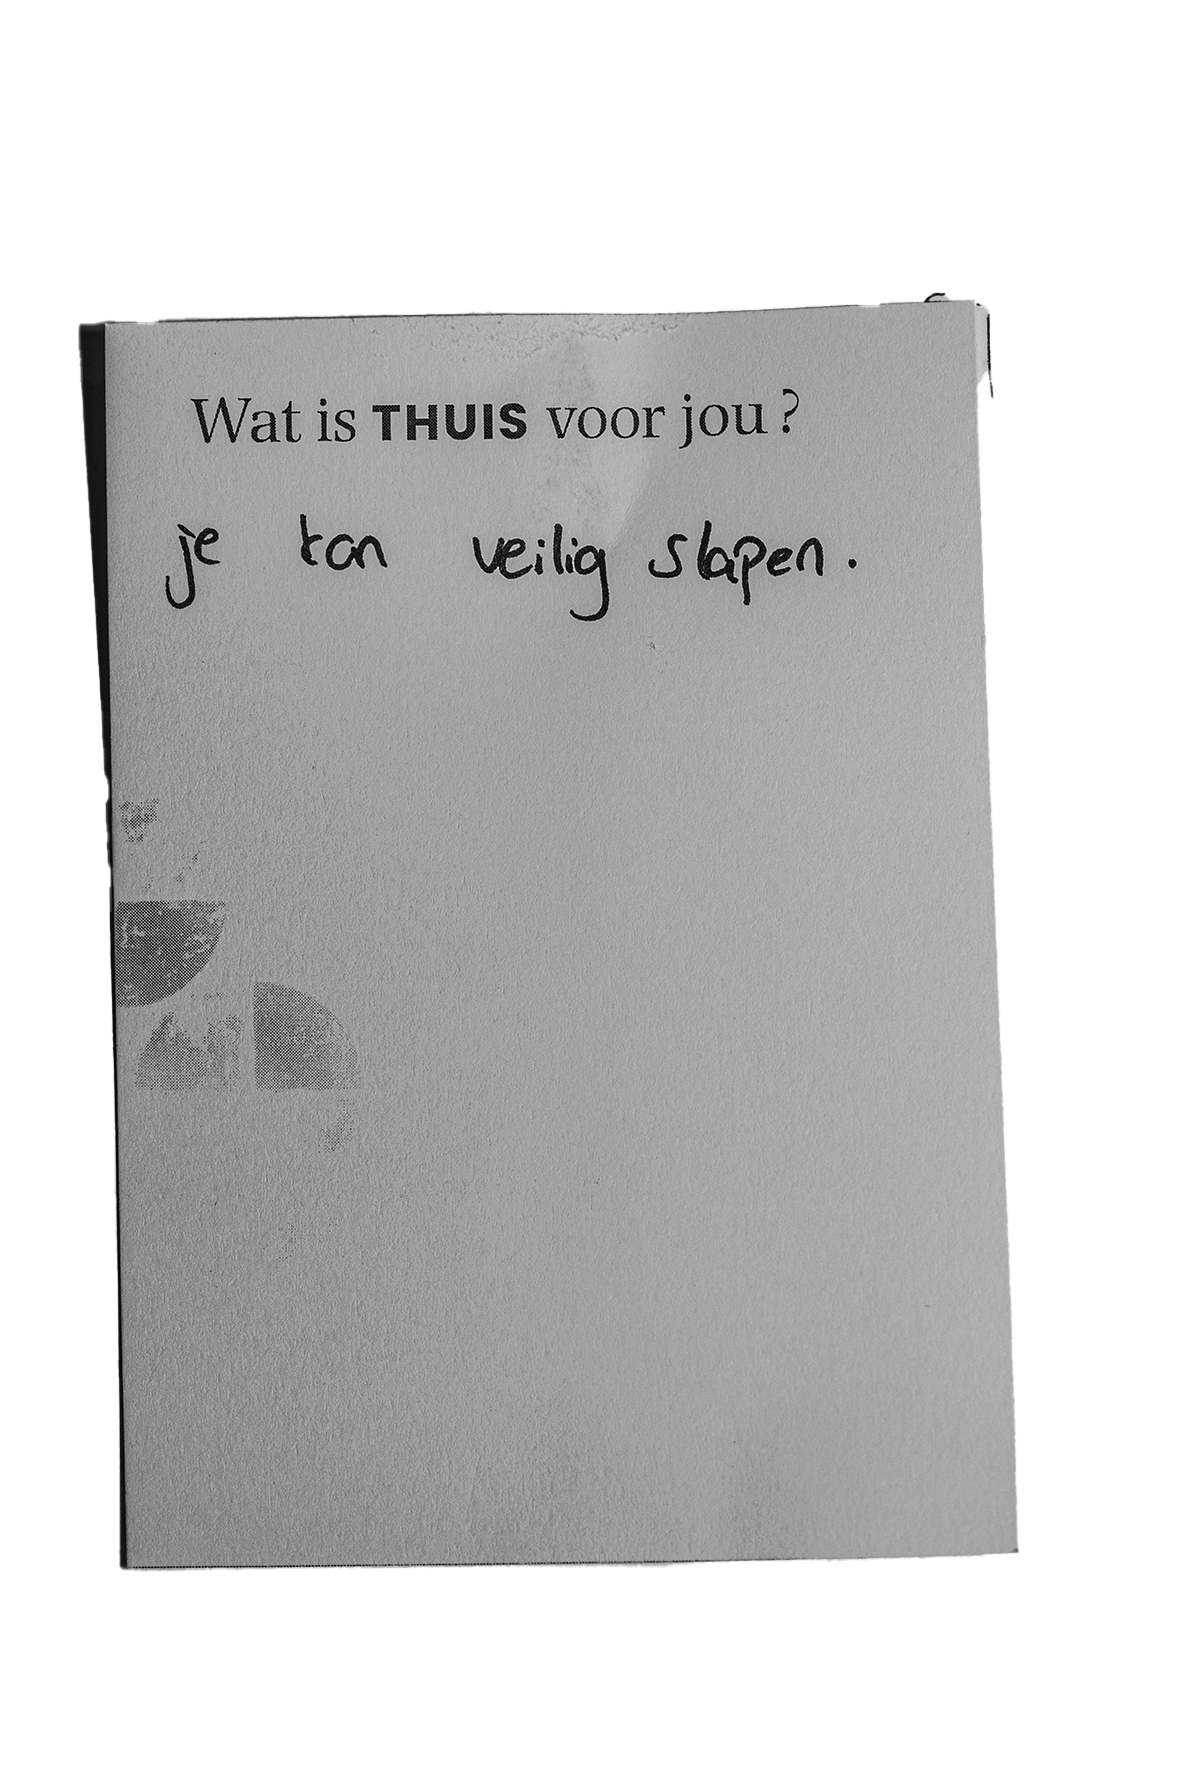 Wat is THUIS voor jou?
je kan veilig slapen.